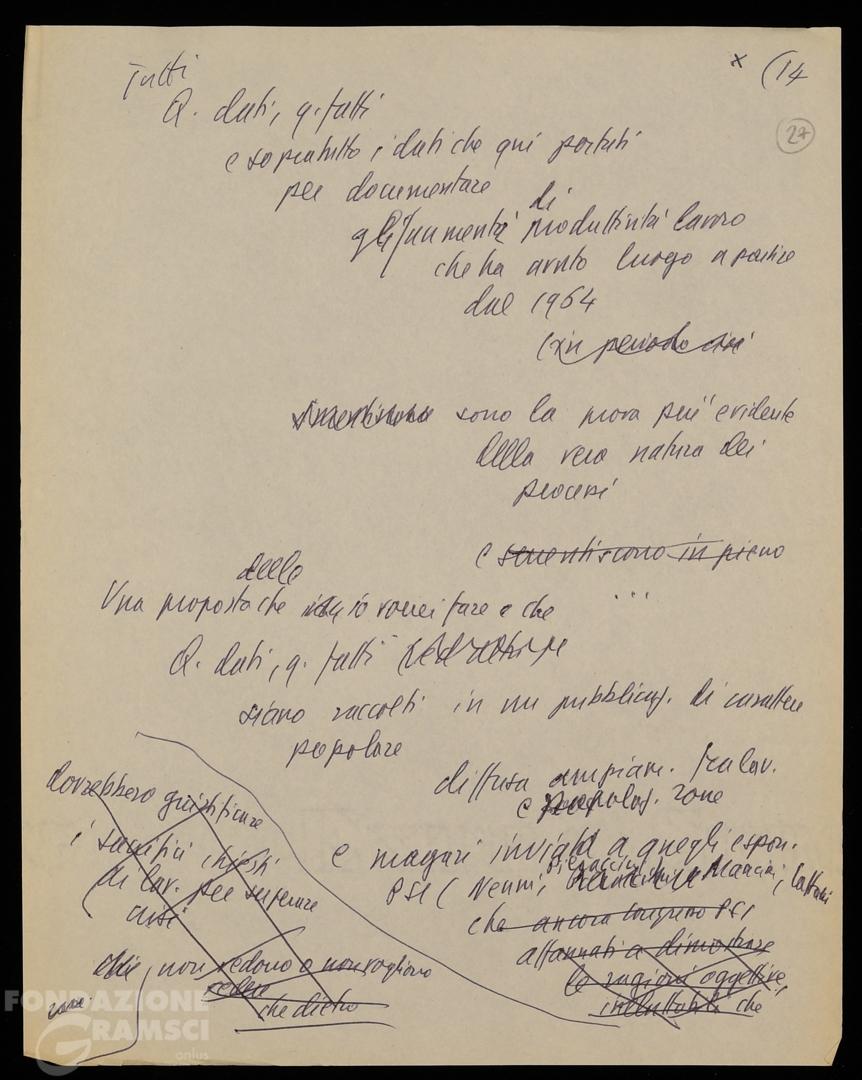 Tutti
x (14
27
Q. dati, q. fatti
e sopratutto i dati che qui portati
per documentare
di
gli aumenti produttività lavoro
che ha avuto luogo a partire
dal 1964
(in periodo crisi
smentiscono sono la prova più evidente
della vera natura dei
processi
e smentiscono in pieno
...
delle
Una proposta che io vorrei fare è che
Q. dati, q. fatti
siano raccolti in una pubblicaz. di carattere
popolare
diffusa ampiam. fra lav.
e popolaz. zone
e magari inviata a quegli espon.
PSI (Nenni, Pieraccini, Mancini, Cattani
che ancora Congresso PSI
affannati a dimostrare
le ragioni oggettive,
ineluttabili che
dovrebbero giustificare
i sacrifici chiesti
ai lav. per superare
crisi
che, non vedono o non vogliono
vedere
che dietro
FONDAZIONE
GRAMSCI
onlus